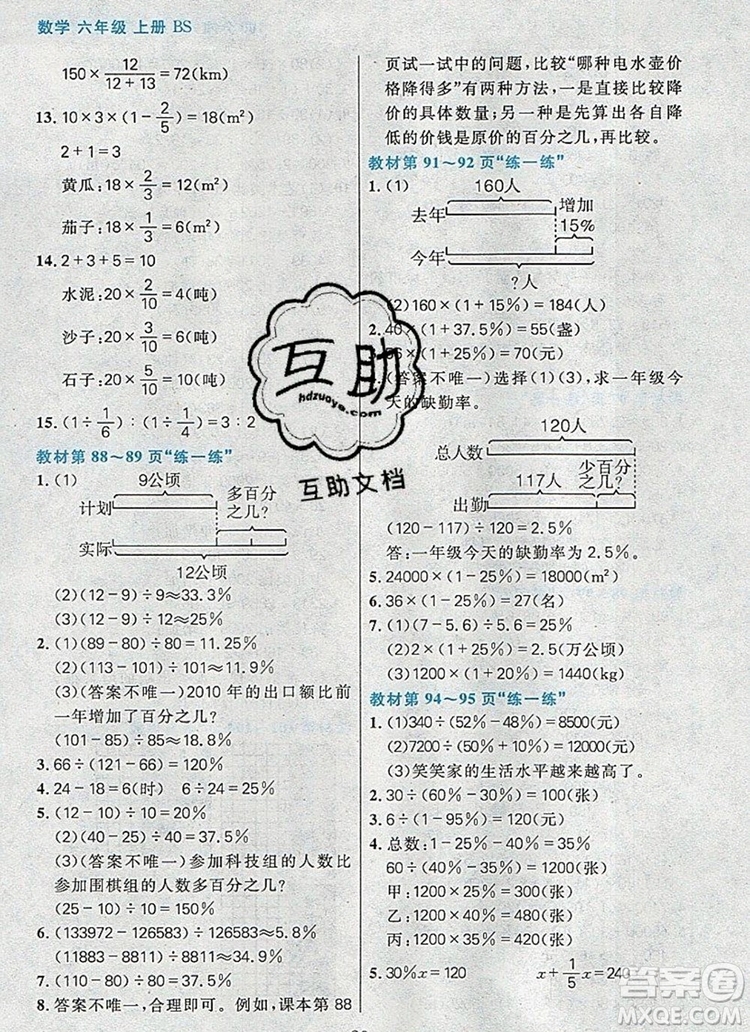 数学 六年级 上册 BS
150×12/(12+13)=72(km)
13. 10×3×(1-2/5)=18(m²)
2+1=3
黄瓜:18×2/3=12(m²)
茄子:18×1/3=6(m²)
14. 2+3+5=10
水泥:20×2/10=4(吨)
沙子:20×3/10=6(吨)
石子:20×5/10=10(吨)
15. (1÷1/6):(1÷1/4)=3:2
教材第 88~89 页“练一练”
1. (1)
9公顷
多百分之几?
计划
实际
12公顷
(2)(12-9)÷9≈33.3%
2. (1)(89-80)÷80=11.25%
(2)(118-85)÷85≈38.8%
(3)(答案不唯一)2010 年的出口额比前
一年增加了百分之几?
(101-85)÷85≈18.8%
3. 66÷(66-12)≈122.2%
4. 24-18=6(时) 6÷24=25%
5. (1)(10-8)÷10=20%
(2)(40-25)÷40=37.5%
(3)(答案不唯一)参加科技组的人数比
参加围棋组的人数多百分之几?
(25-10)÷10=150%
6. (133972-126583)÷126583≈5.8%
7. (9111-8811)÷8811≈3.4%
8. 答案不唯一,合理即可。例如,课本第 88
页试一试中的问题,比较“哪种电水壶价
格降得多”有两种方法,一是直接比较降
价的具体数量;另一种是先算出各自降
低的价钱是原价的百分之几,再比较。
教材第 91~92 页“练一练”
1. (1)
160人
去年
增加
15%
今年
?人
(2)160×(1+15%)=184(人)
2. 40×(1+37.5%)=55(盏)
×(1+25%)=70(元)
(答案不唯一)选择(1)(3),求一年级今
天的缺勤率。
120人
总人数
少百分之几?
117人
出勤
(120-117)÷120=2.5%
答:一年级今天的缺勤率为 2.5%。
5. 24000×(1-25%)=18000(m²)
6. 36×(1-25%)=27(名)
7. (1)(7-5.6)÷5.6=25%
(2)2×(1+25%)=2.5(万公顷)
(3)1200×(1+20%)=1440(kg)
教材第 94~95 页“练一练”
1. (1)340÷(52%-48%)=8500(元)
(2)7200÷60%=12000(元)
(3)笑笑家的生活水平越来越高了。
2. 30÷(40%-30%)=300(张)
3. 6÷(1-95%)=120(张)
4. 总数:1-25%-40%=35%
60÷(40%-35%)=1200(张)
甲:1200×25%=300(张)
乙:1200×40%=480(张)
丙:1200×35%=420(张)
5. 30%x=120 x+1/5x=240
互助
hdzuoye.com
互助文档
答案圈
MXQE.COM